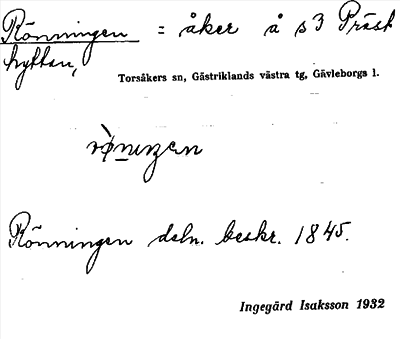 Rönningen = åker å s3 Präst
hyttan,
Torsåkers sn, Gästriklands västra tg, Gävleborgs l.
Rönningen deln. beskr. 1845.
Ingegärd Isaksson 1932